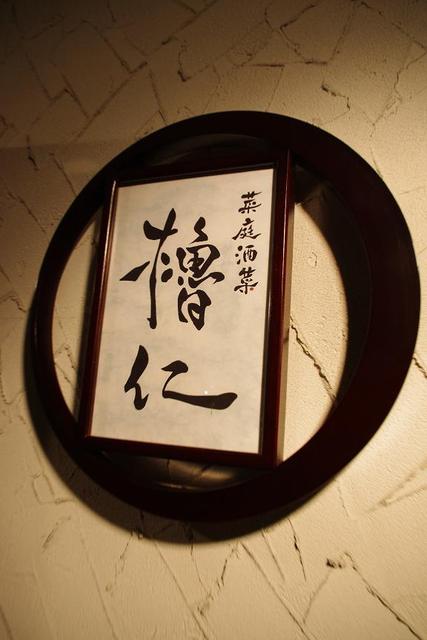 菜庭酒菜
櫓仁